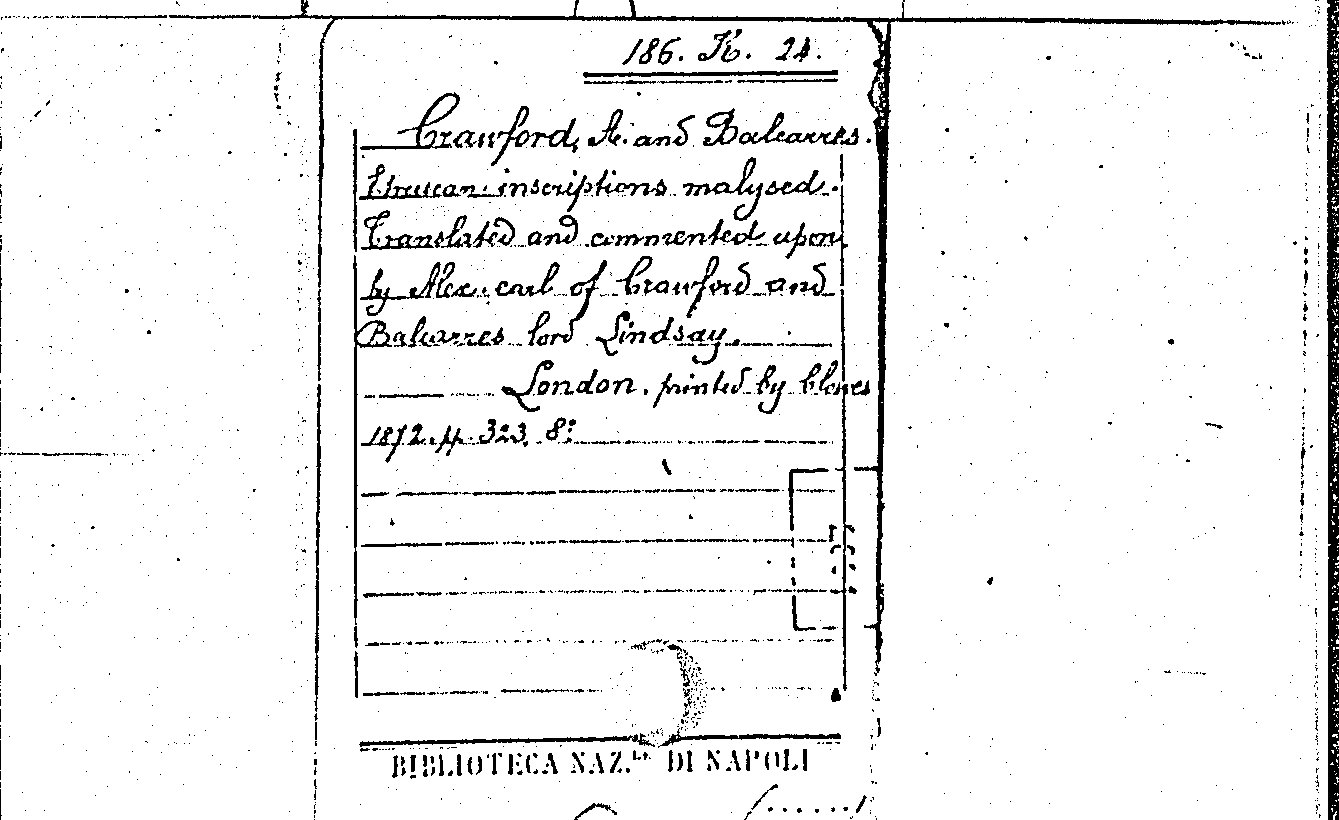 186. K. 24.
Crawford, A. and Balcarres.
Etruscan inscriptions malysed.
Translated and commented upon
by Alex. earl of Crawford and
Balcarres lord Lindsay.
London. printed by Clowes
1872. pp. 323. 8º
BIBLIOTECA NAZ.LE DI NAPOLI